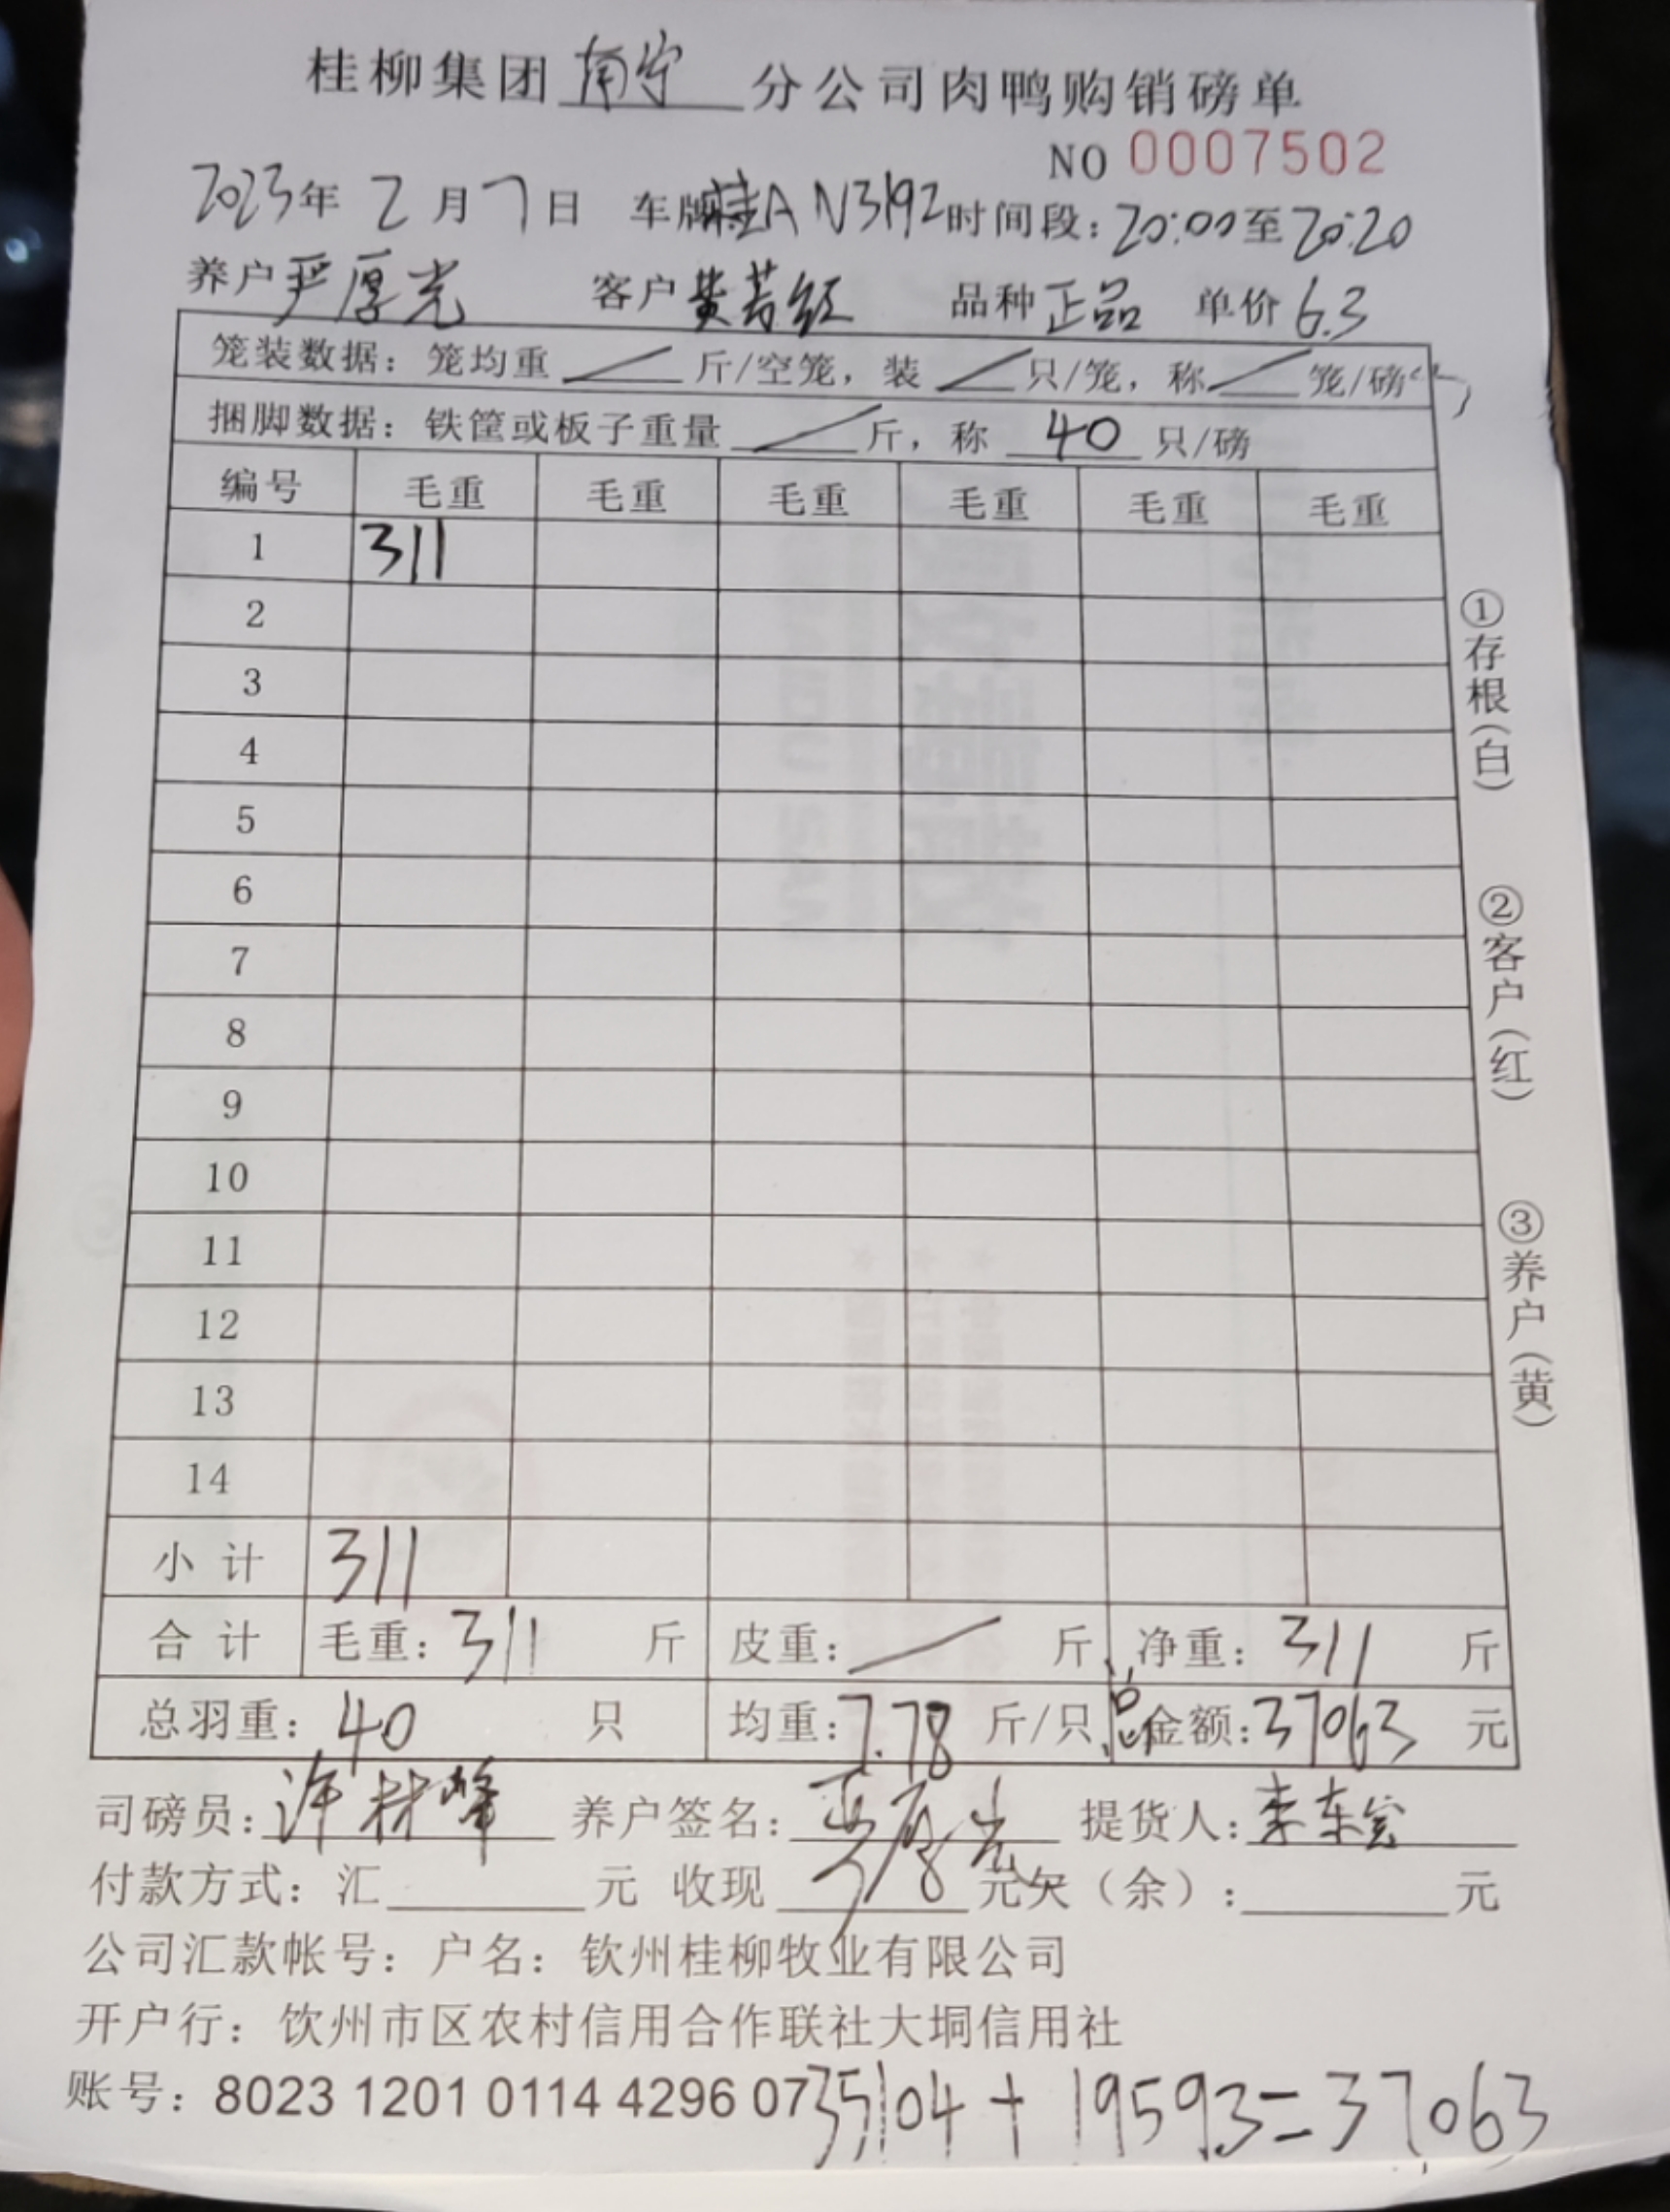 桂柳集团南宁分公司肉鸭购销磅单
NO 0007502
2023年2月7日 车牌桂A N3192时间段：20:00至20:20
养户严厚光 客户黄若红 品种正品 单价6.3
笼装数据：笼均重 斤/空笼，装 只/笼，称 笼/磅
捆脚数据：铁筐或板子重量 斤，称 40 只/磅
编号 毛重 毛重 毛重 毛重 毛重 毛重
1 311
2
3
4
5
6
7
8
9
10
11
12
13
14
小计 311
合计 毛重：311 斤 皮重： 斤 净重：311 斤
总羽重：40 只 均重：7.78 斤/只 总金额：37063 元
司磅员：许材峰 养户签名：严厚光 提货人：李东
付款方式：汇 元 收现 元欠（余）： 元
公司汇款帐号：户名：钦州桂柳牧业有限公司
开户行：饮州市区农村信用合作联社大垌信用社
账号：8023 1201 0114 4296 07
35104 + 1959.3 = 37063
①存根（白）
②客户（红）
③养户（黄）